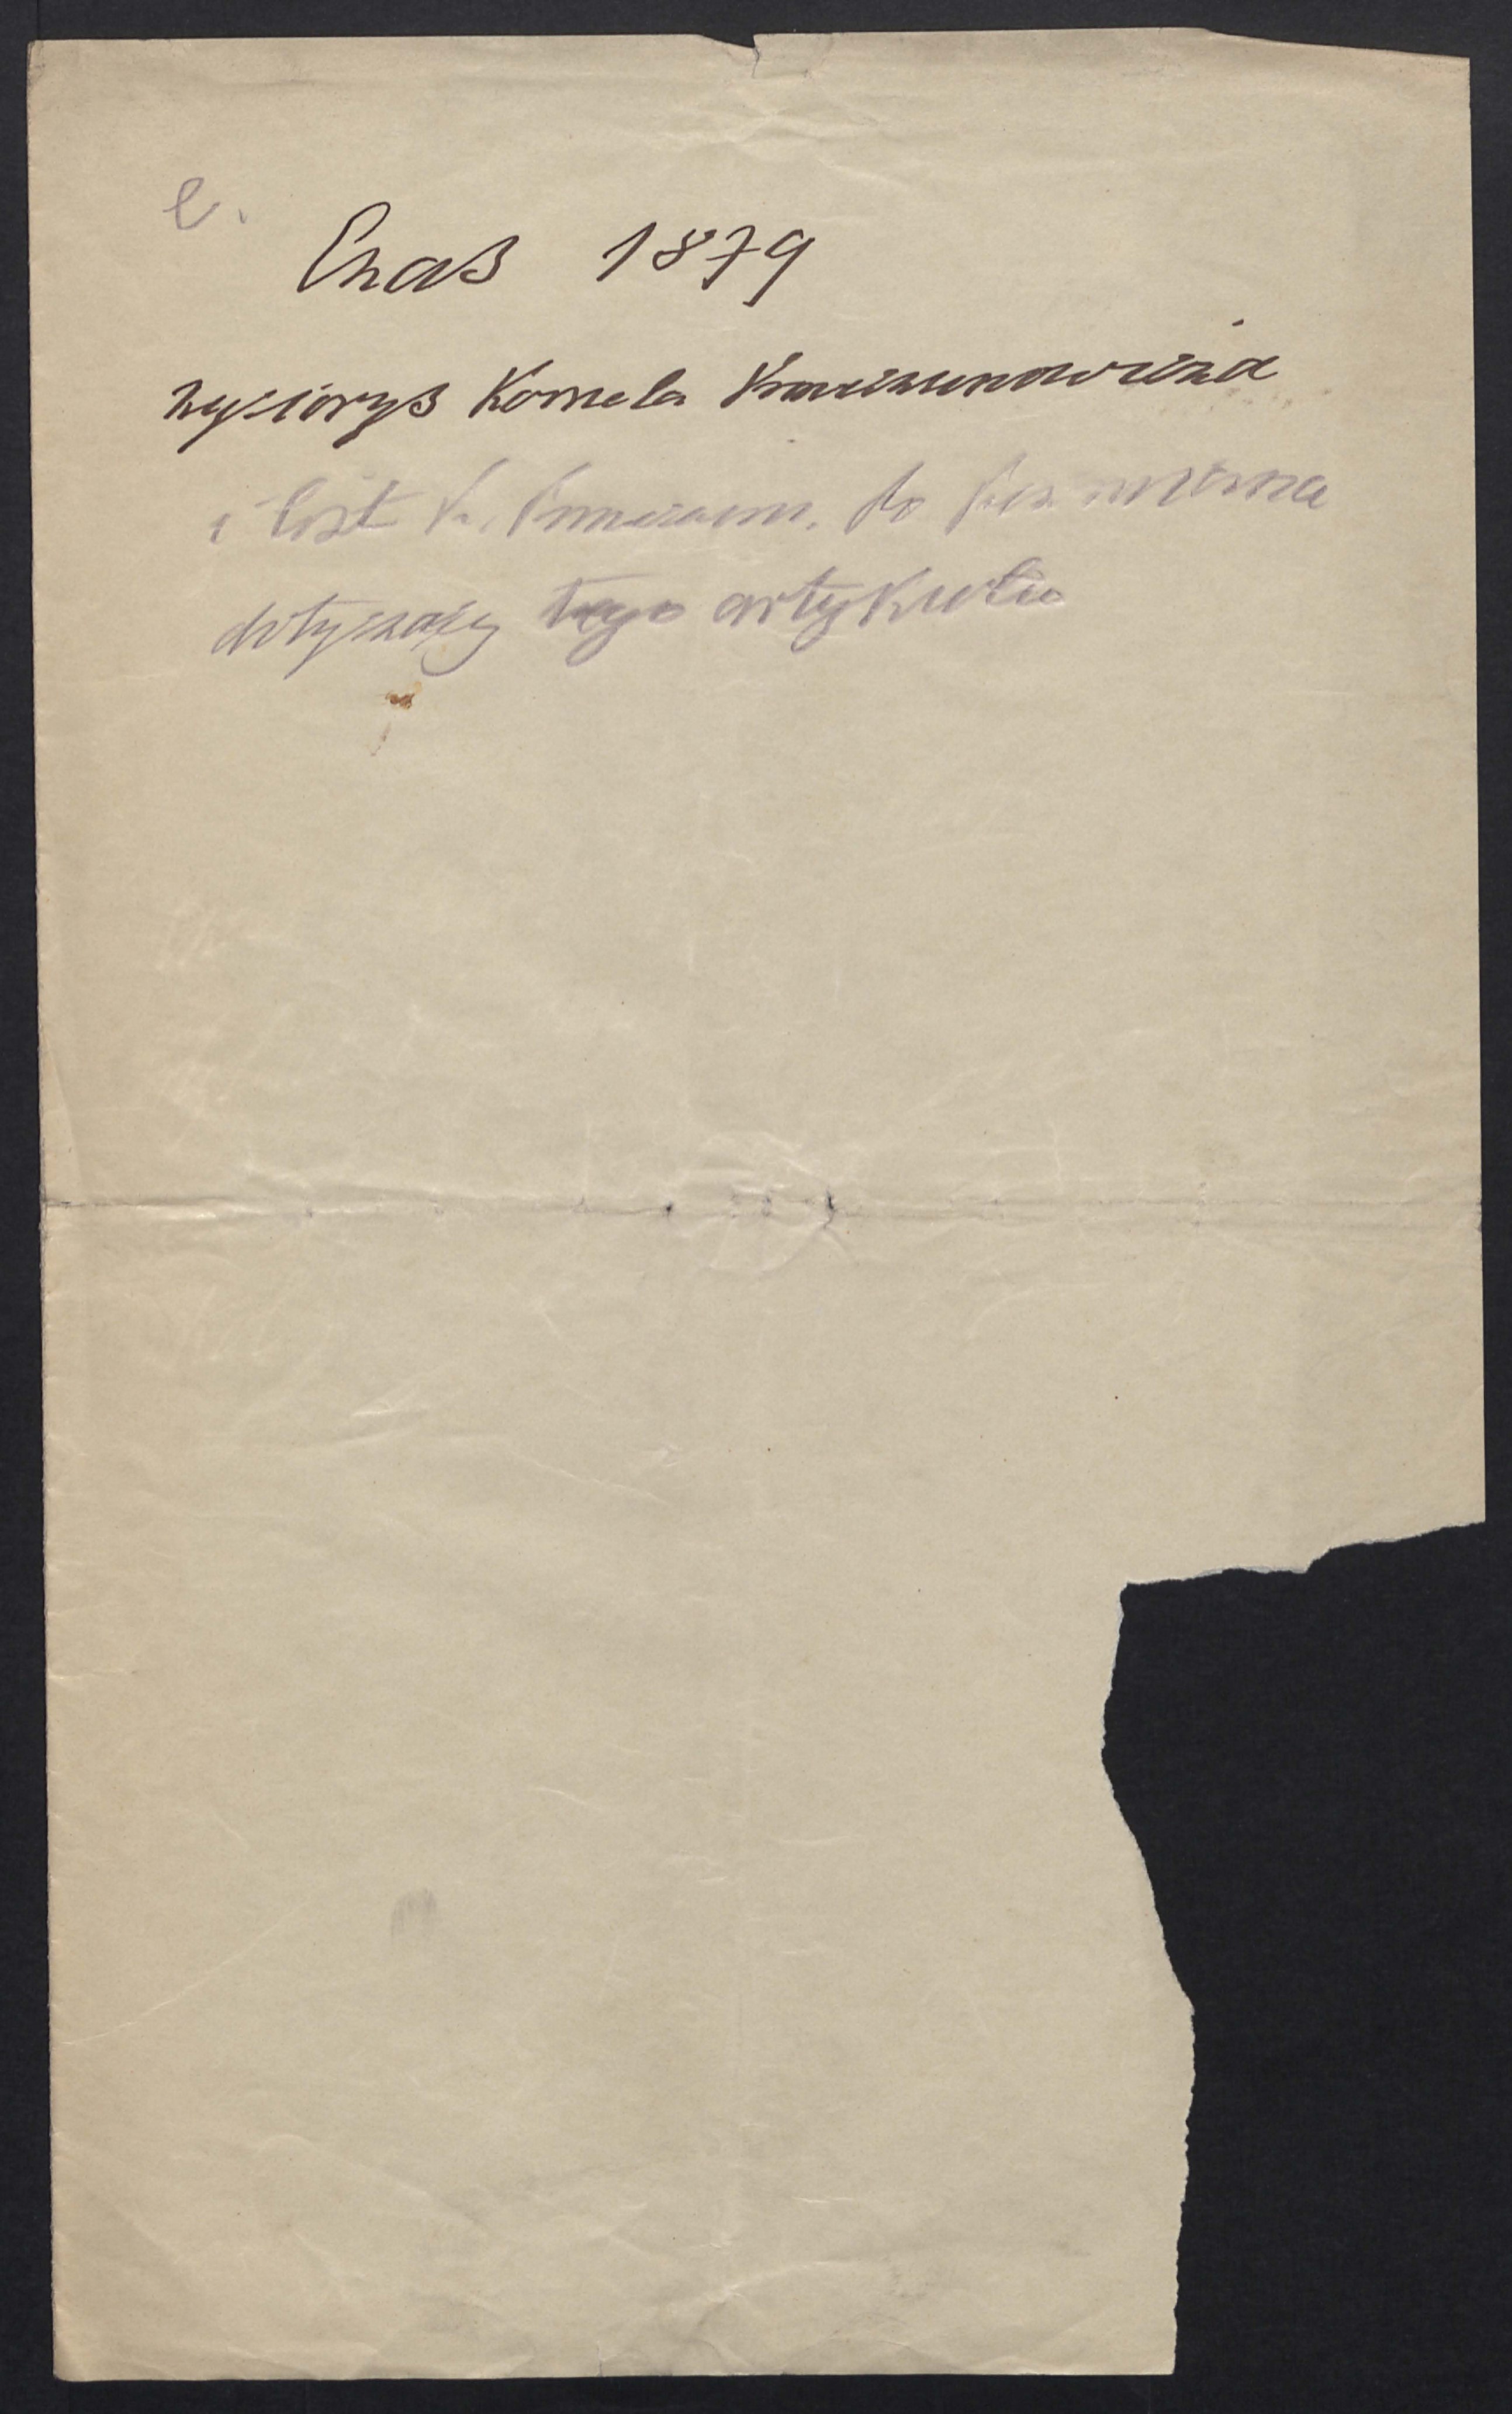 e.
Czas 1879
życiorys Kornela Krzeczunowicza
i list K. Krzeczun. do
dotyczący tego artykułu